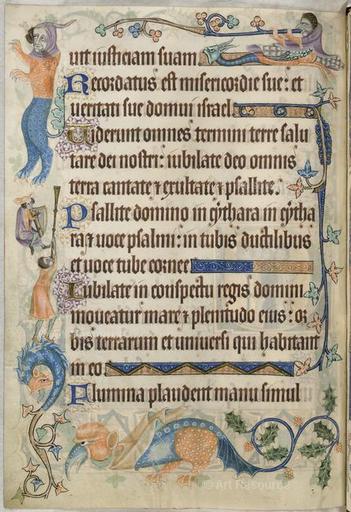 uit iusticiam suam
Recordatus est misericordie sue: et
ueritati sue domui israel
Uiderunt omnes termini terre salu
tare dei nostri: iubilate deo omnis
terra cantate ⁊ exultate ⁊ psallite.
Psallite domino in cythara in cytha
ra ⁊ uoce psalmi: in tubis ductilibus
et uoce tube cornee
Iubilate in conspectu regis domini
moueatur mare ⁊ plenitudo eius: or
bis terrarum et uniuersi qui habitant
in eo
Flumina plaudent manu simul
© Art Resource